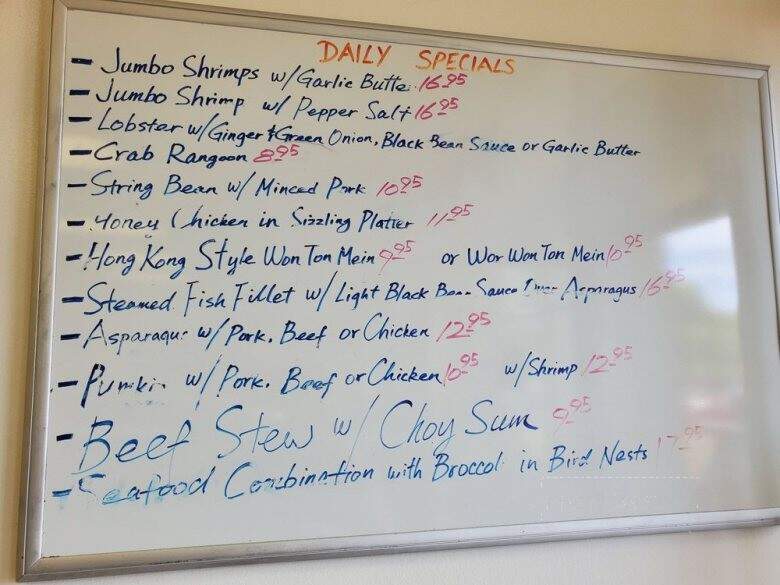 DAILY SPECIALS
- Jumbo Shrimps w/Garlic Butte 16.95
- Jumbo Shrimp w/ Pepper Salt 16.95
- Lobster w/Ginger & Green Onion, Black Bean Sauce or Garlic Butter
- Crab Rangoon 8.95
- String Bean w/ Minced Pork 10.95
- Honey Chicken in Sizzling Platter 11.95
- Hong Kong Style Won Ton Mein 9.95 or Wor Won Ton Mein 10.95
- Steamed Fish Fillet w/ Light Black Bean Sauce Over Asparagus 16.95
- Asparagus w/ Pork, Beef or Chicken 12.95
- Pumkin w/ Pork, Beef or Chicken 10.95 w/Shrimp 12.95
- Beef Stew w/ Choy Sum 9.95
- Seafood Combination with Broccoli in Bird Nests 17.95